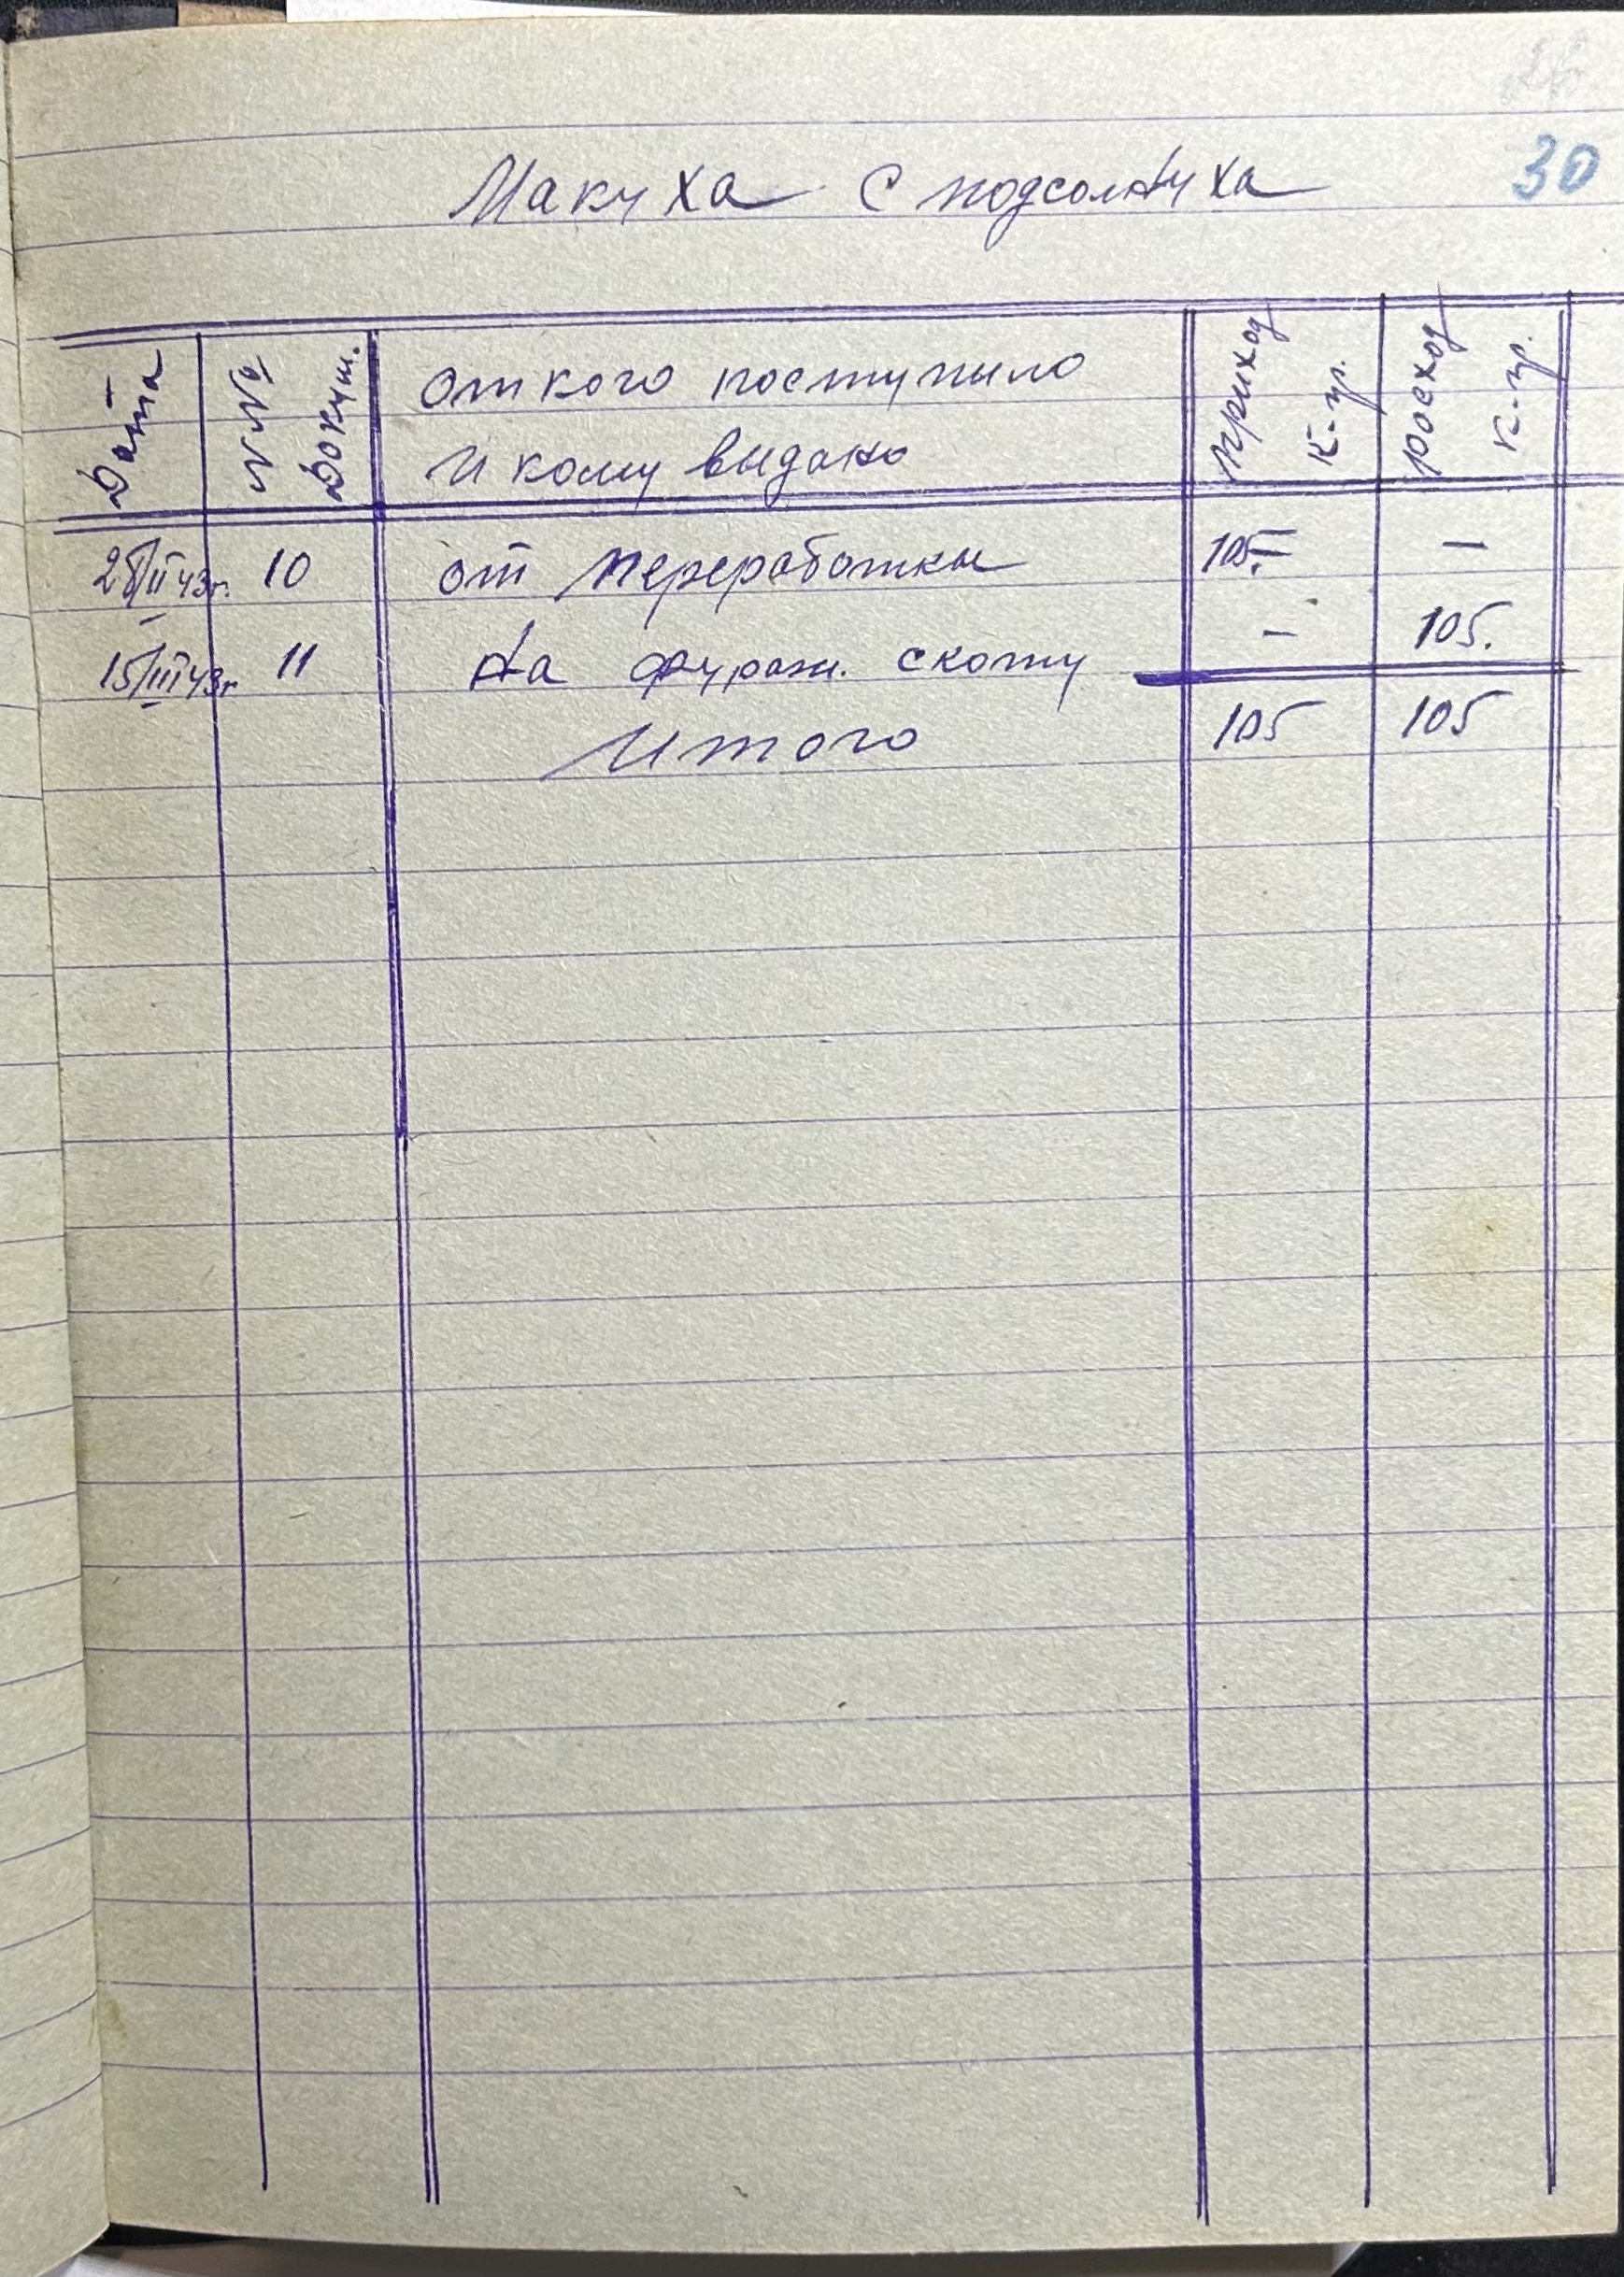 30
Макуха с подсолнуха
Дата
№№ Докум.
от кого поступило
и кому выдано
приход к-гр.
росход к-гр.
28/II 43г. 10 от переработки 105. —
15/III 43г 11 на фураж. скоту — 105.
Итого 105 105